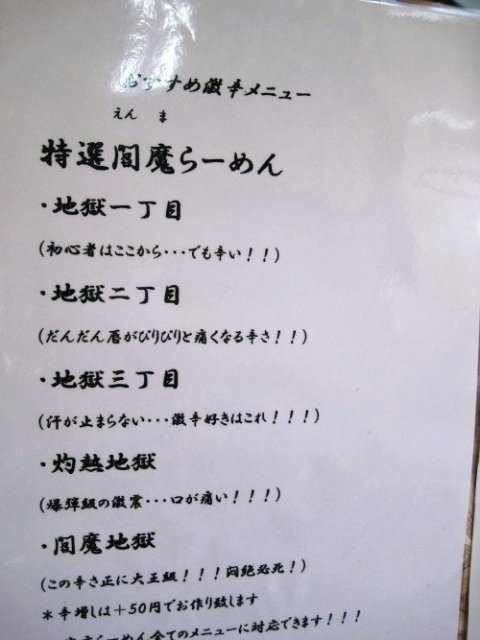 おすすめ激辛メニュー
えんま
特選閻魔らーめん
・地獄一丁目
(初心者はここから・・・でも辛い！！)
・地獄二丁目
(だんだん唇がぴりぴりと痛くなる辛さ！！)
・地獄三丁目
(汗が止まらない・・・激辛好きはこれ！！！)
・灼熱地獄
(爆弾級の激震・・・口が痛い！！！)
・閻魔地獄
(この辛さ正に大王級！！！悶絶必死！)
＊辛増しは＋50円でお作り致します
らーめん全てのメニューに対応できます！！！